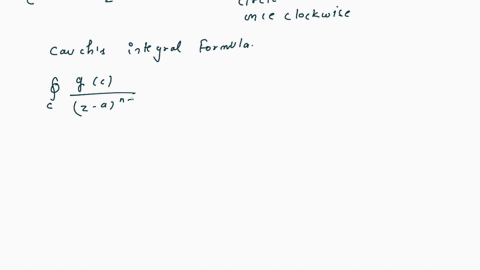 once clockwise
cauchis integral formula.
∮ g(c)
c (z-a)^n-